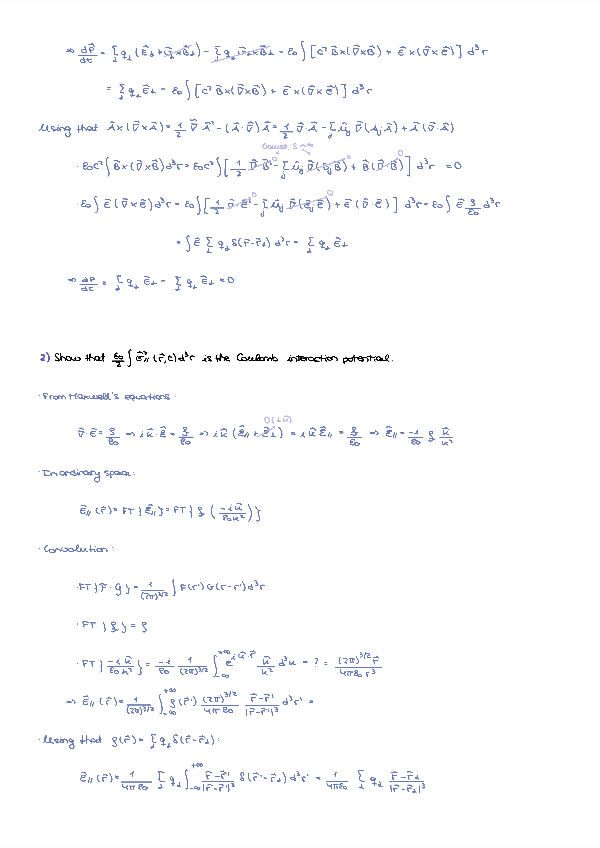 ⇒ dP⃗/dt = Σ_α q_α (E⃗_α + v⃗_α×B⃗_α) - Σ_α q_α v⃗_α×B⃗_α - ε₀ ∫ [c² B⃗×(∇⃗×B⃗) + E⃗×(∇⃗×E⃗)] d³r
= Σ_α q_α E⃗_α - ε₀ ∫ [c² B⃗×(∇⃗×B⃗) + E⃗×(∇⃗×E⃗)] d³r
Using that A⃗×(∇⃗×A⃗) = 1/2 ∇⃗·A⃗² - (A⃗·∇⃗)A⃗ = 1/2 ∇⃗·A⃗ - Σ_j û_j ∇⃗(A_j A⃗) + A⃗(∇⃗·A⃗)
Gauss, S→∞
· ε₀c² ∫ B⃗×(∇⃗×B⃗) d³r = ε₀c² ∫ [1/2 ∇⃗·B⃗² - Σ_j û_j ∇⃗(B_j B⃗) + B⃗(∇⃗·B⃗)] d³r = 0
· ε₀ ∫ E⃗(∇⃗×E⃗) d³r = ε₀ ∫ [1/2 ∇⃗·E⃗² - Σ_j û_j ∇⃗(E_j E⃗) + E⃗(∇⃗·E⃗)] d³r = ε₀ ∫ E⃗ ρ/ε₀ d³r
= ∫ E⃗ Σ_α q_α δ(r⃗-r⃗_α) d³r = Σ_α q_α E⃗_α
⇒ dP⃗/dt = Σ_α q_α E⃗_α - Σ_α q_α E⃗_α = 0
2) Show that ε₀/2 ∫ E⃗²_∥(r⃗,t) d³r is the Coulomb interaction potential.
· From Maxwell's equations:
0 (⊥k⃗)
∇⃗·E⃗ = ρ/ε₀ ⇒ i k⃗·E⃗ = ρ/ε₀ ⇒ i k⃗ (E⃗_∥ + E⃗_⊥) = i k⃗ E⃗_∥ = ρ/ε₀ ⇒ E⃗_∥ = -i/ε₀ ρ k⃗/k²
· In ordinary space:
E⃗_∥(r⃗) = FT{E⃗_∥} = FT{ρ (-i k⃗/ε₀k²)}
· Convolution:
· FT{F·G} = 1/(2π)^{3/2} ∫ F(r') G(r-r') d³r
· FT{ρ} = ρ
· FT{-i k⃗/ε₀k²} = -i/ε₀ 1/(2π)^{3/2} ∫_{-∞}^{+∞} e^{i k⃗·r⃗} k⃗/k² d³k = ? = (2π)^{3/2} r⃗/4πε₀ r³
⇒ E⃗_∥(r⃗) = 1/(2π)^{3/2} ∫_{-∞}^{+∞} ρ(r⃗') (2π)^{3/2}/4πε₀ r⃗-r⃗'/|r⃗-r⃗'|³ d³r' =
· Using that ρ(r⃗) = Σ_α q_α δ(r⃗-r⃗_α):
E⃗_∥(r⃗) = 1/4πε₀ Σ_α q_α ∫_{-∞}^{+∞} r⃗-r⃗'/|r⃗-r⃗'|³ δ(r⃗'-r⃗_α) d³r' = 1/4πε₀ Σ_α q_α r⃗-r⃗_α/|r⃗-r⃗_α|³